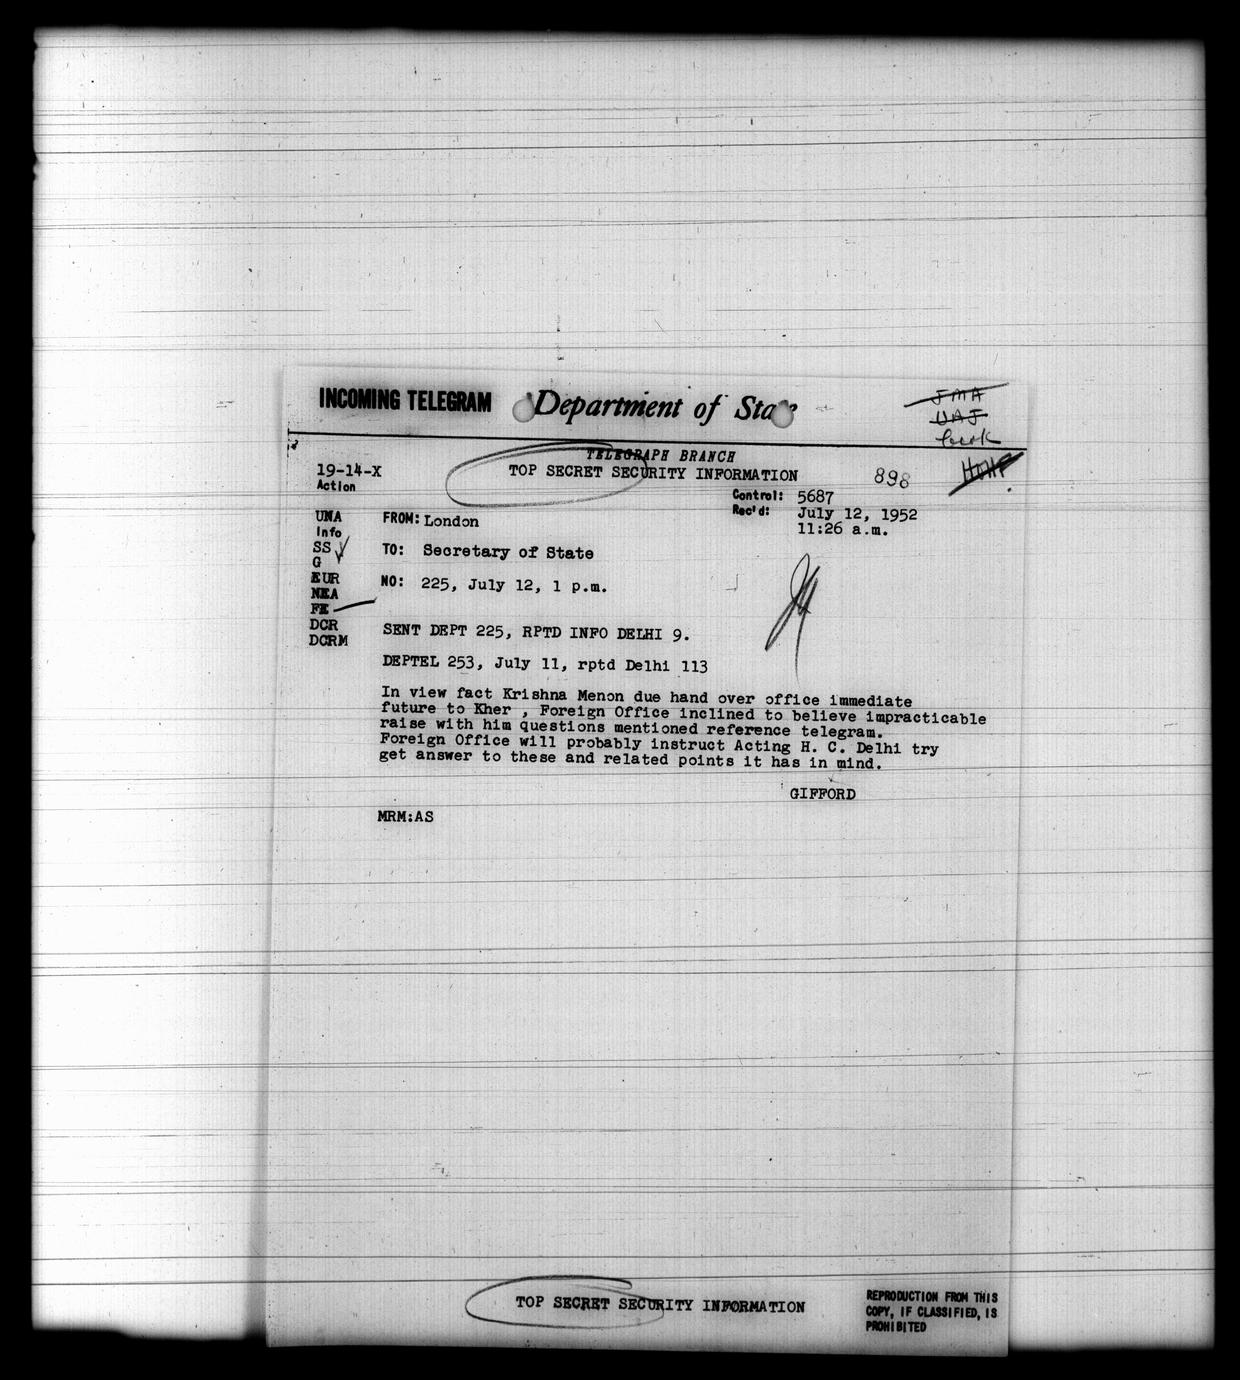 INCOMING TELEGRAM Department of State
JMA
UAJ
TELEGRAPH BRANCH
19-14-X TOP SECRET SECURITY INFORMATION 898
Action
Control: 5687
Rec'd: July 12, 1952
11:26 a.m.
UNA
Info
SS
G
EUR
NEA
FE
DCR
DCRM
FROM: London
TO: Secretary of State
NO: 225, July 12, 1 p.m.
SENT DEPT 225, RPTD INFO DELHI 9.
DEPTEL 253, July 11, rptd Delhi 113
In view fact Krishna Menon due hand over office immediate
future to Kher , Foreign Office inclined to believe impracticable
raise with him questions mentioned reference telegram.
Foreign Office will probably instruct Acting H. C. Delhi try
get answer to these and related points it has in mind.
GIFFORD
MRM:AS
TOP SECRET SECURITY INFORMATION
REPRODUCTION FROM THIS
COPY, IF CLASSIFIED, IS
PROHIBITED